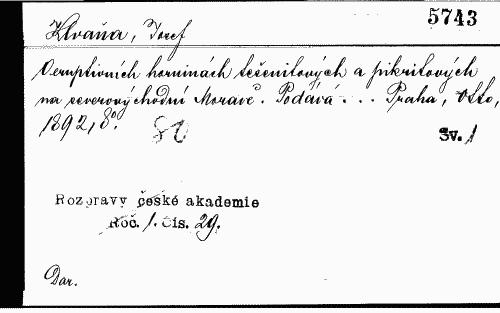 5743
Klvaňa, Josef
O eruptivních horninách těšenitových a pikritových
na severovýchodní Moravě. Podává ... Praha, Otto,
1892, 8°.
Sv. 1
Rozpravy české akademie
Roč. 1. Čís. 29.
Dar.